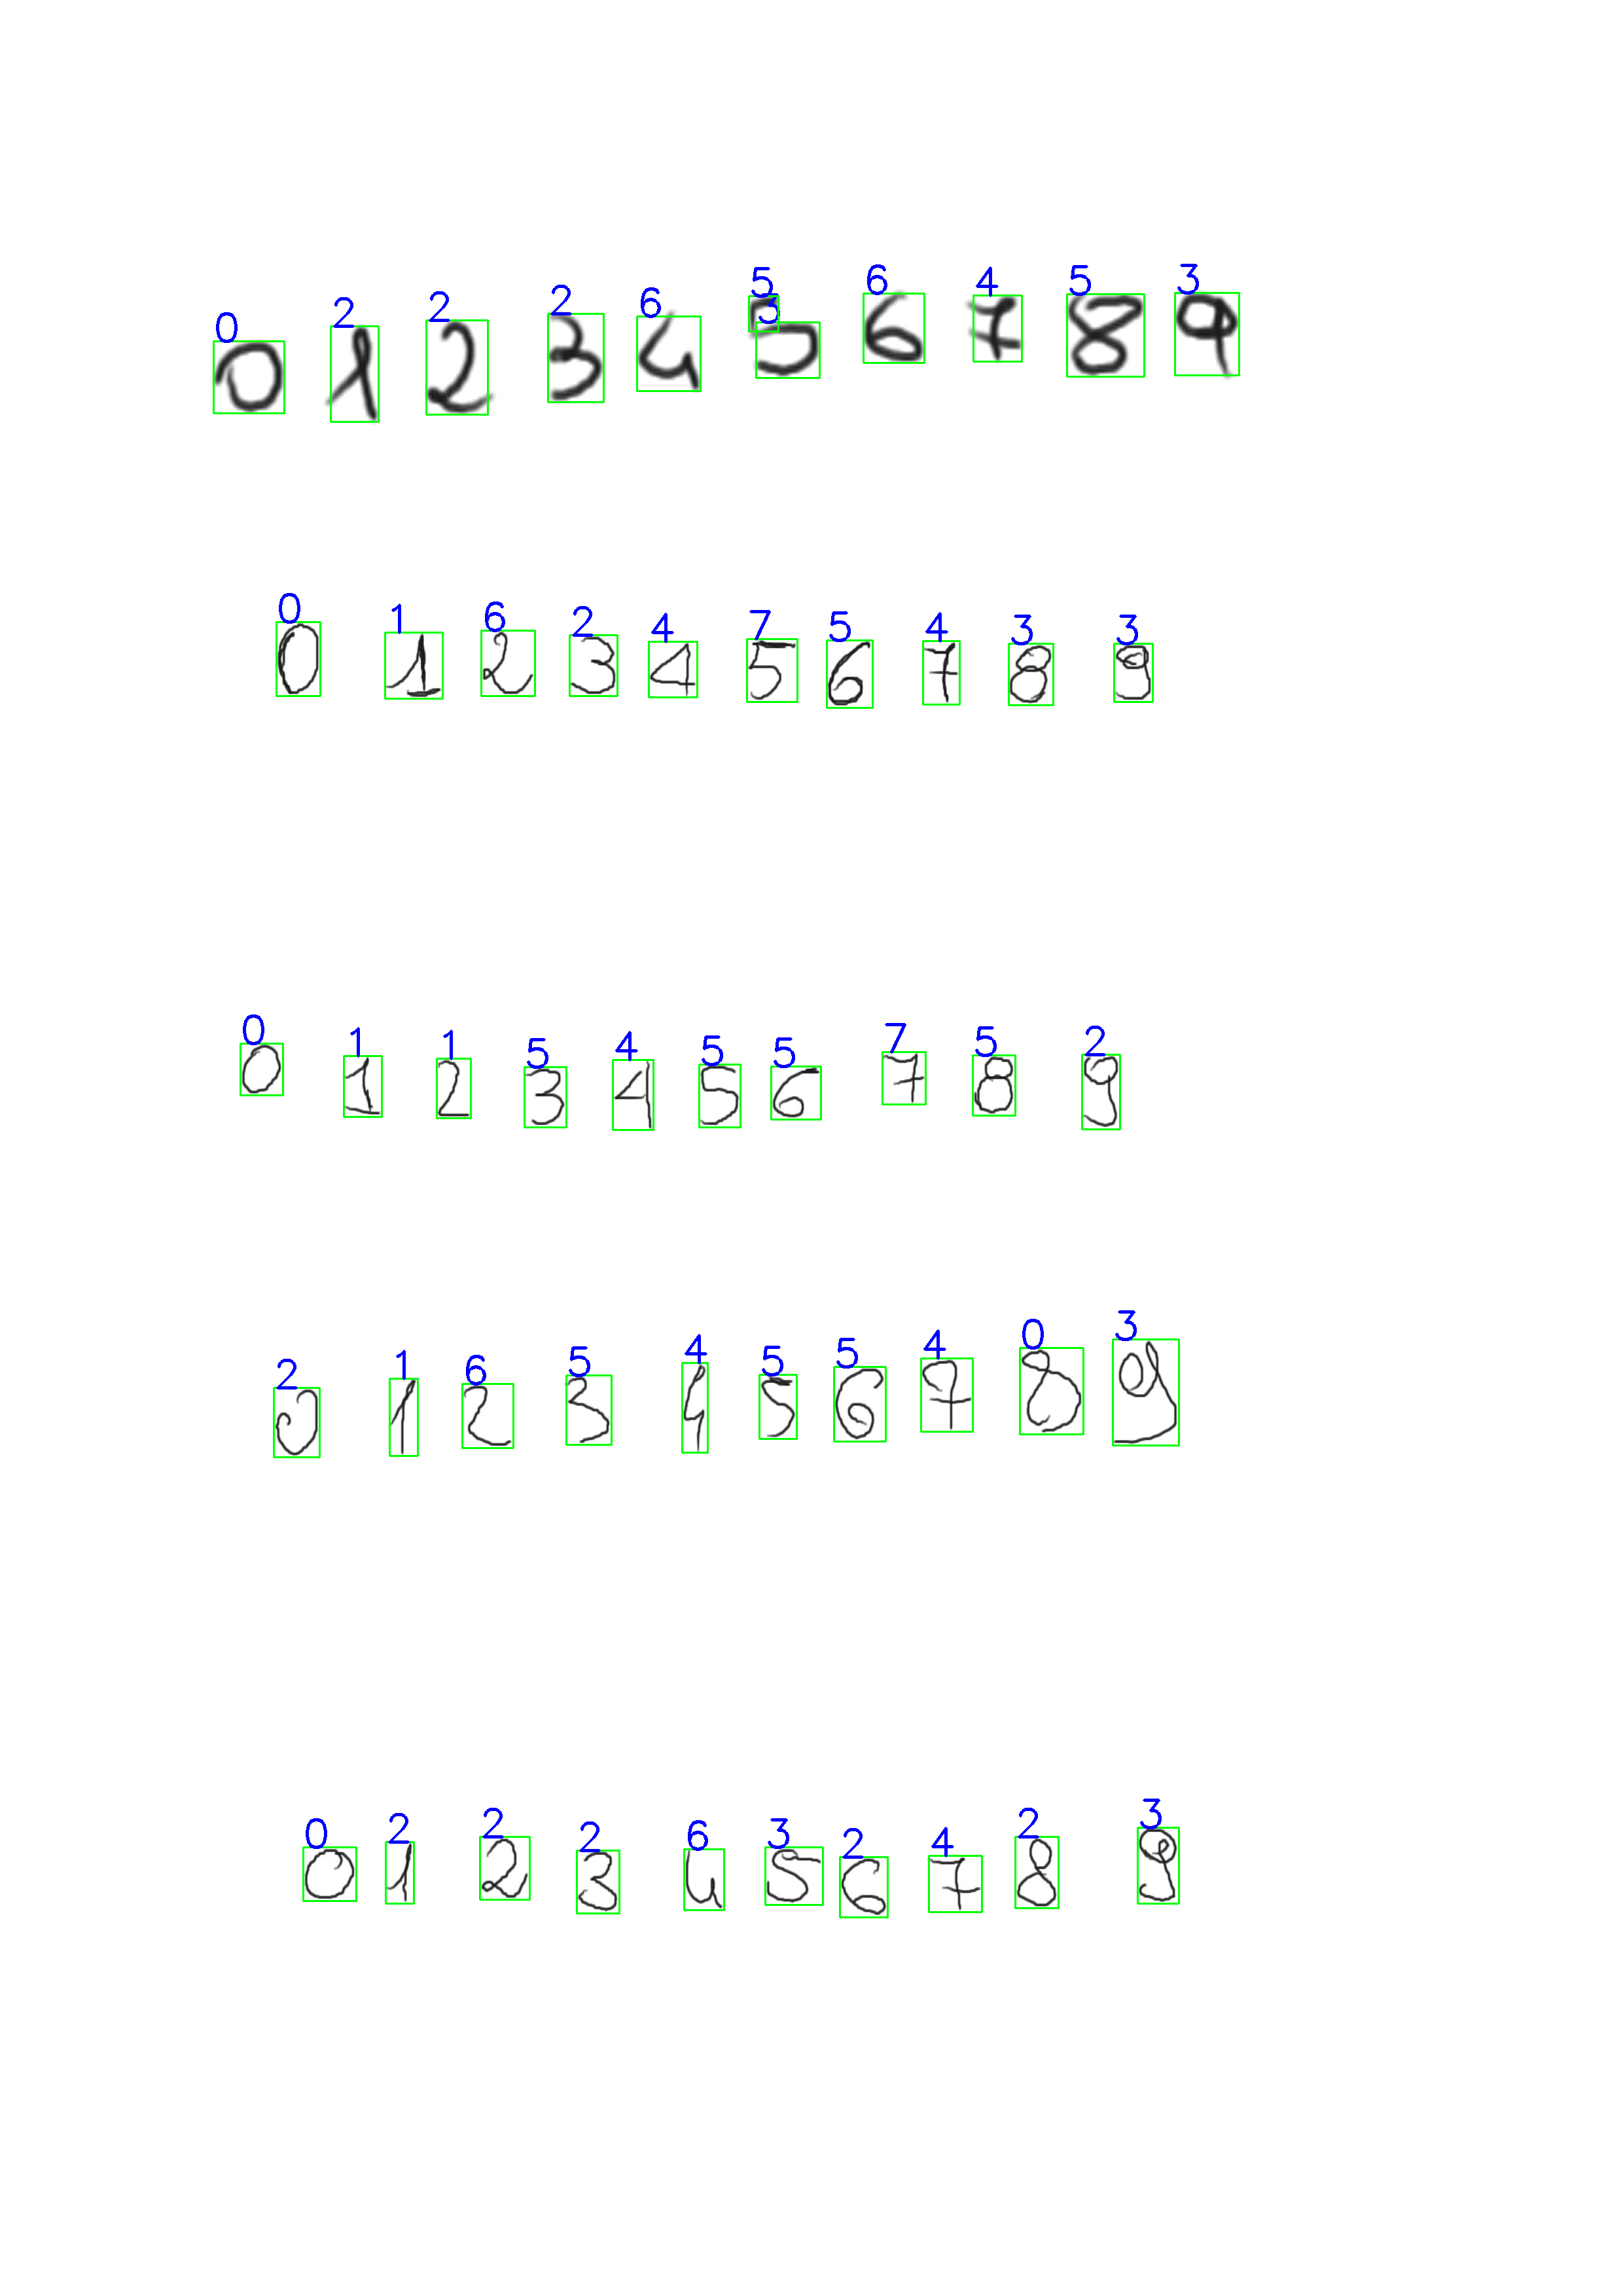 0 2 2 2 6 5 3 6 4 5 3
0 1 2 3 4 5 6 7 8 9
0 1 6 2 4 7 5 4 3 3
0 1 2 3 4 5 6 7 8 9
0 1 1 5 4 5 5 7 5 2
0 1 2 3 4 5 6 7 8 9
2 1 6 5 4 5 5 4 0 3
0 1 2 3 4 5 6 7 8 9
0 2 2 2 6 3 2 4 2 3
0 1 2 3 4 5 6 7 8 9